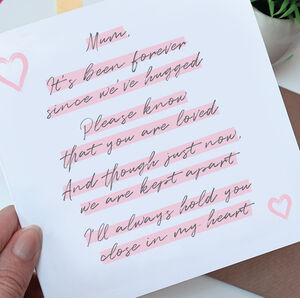 Mum,
It's been forever
since we've hugged
Please know
that you are loved
And though just now,
we are kept apart
I'll always hold you
close in my heart